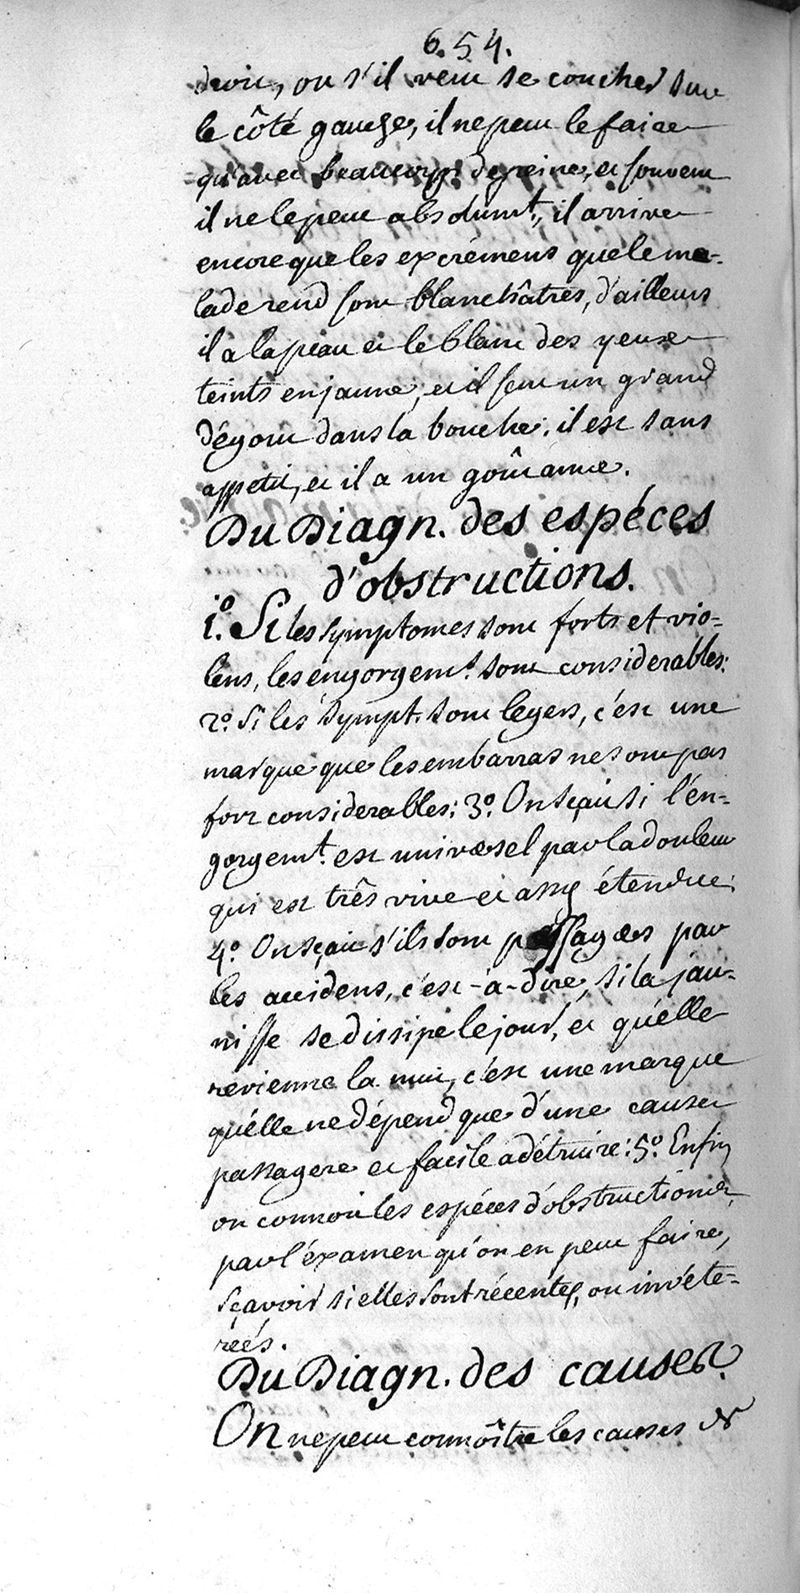 654.
droit, ou s'il veut se coucher sur
le côté gauche, il ne peut le faire
qu'avec beaucoup de peine, et souvent
il ne le peut absolumt., il arrive
encore que les excrémens que le ma-
lade rend sont blanchâtres, d'ailleurs
il a la peau et le blanc des yeux
teints en jaune, et il sent un grand
dégout dans la bouche; il est sans
appetit, et il a un goût amer.
Du Diagn. des espéces
d'obstructions.
1.° Si les symptomes sont forts et vio-
lens, les engorgemt. sont considerables:
2.° Si les sympt. sont legers, c'est une
marque que les embarras ne sont pas
fort considerables: 3.° On sçait si l'en-
gorgemt. est universel par la douleur
qui est três vive et assés étendue:
4.° On sçait s'ils sont passagers par
les accidens, c'est-à-dire, si la jau-
nisse se dissipe le jour, et qu'élle
revienne la nuit, c'est une marque
qu'élle ne dépend que d'une cause
passagere et facile a détruire: 5.° Enfin
on connoit les espéces d'obstructions,
par l'éxamen qu'on en peut faire,
sçavoir si elles sont récentes, ou invéte-
réés.
Du Diagn. des causes.
On ne peut connoître les causes de